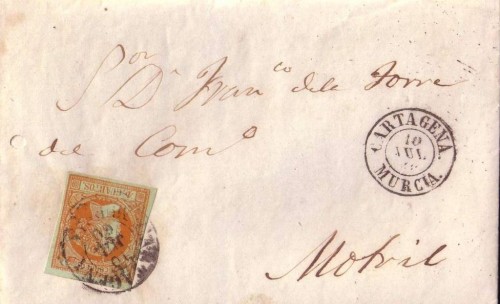 Sor
Dn Franco de la Torre
del Como
CARTAGENA.
10
JUL
MURCIA.
Motril